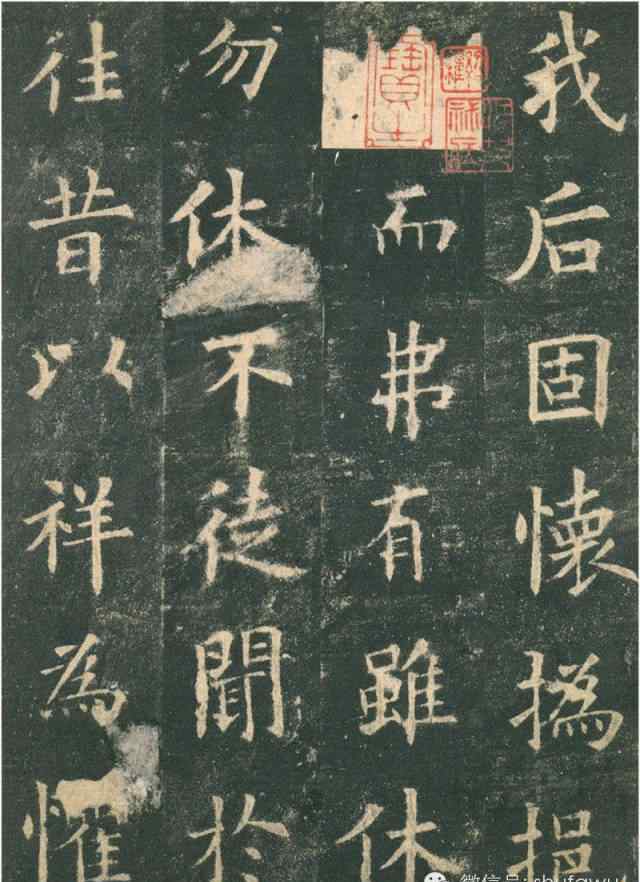 我后固懷撝挹
而弗有雖休
勿休不徒聞於
往昔以祥為懼
微信号: shufawu1